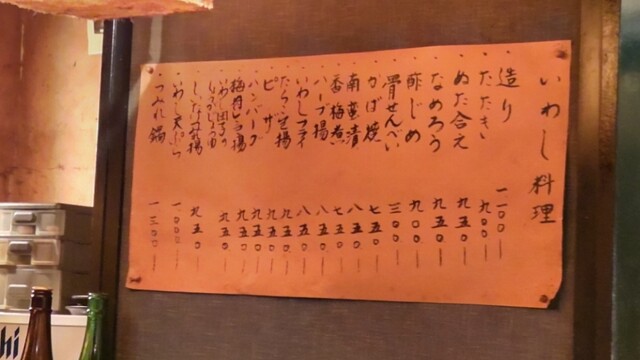 いわし料理
造り 一一〇〇
たたき 九〇〇
ぬた合え 九五〇
なめろう 九五〇
酢じめ 九〇〇
骨せんべい 三〇〇
かば焼 七五〇
南蛮漬 八五〇
香梅煮 七五〇
ハーブ揚 八五〇
いわしフライ 八五〇
たらこ芝揚 九五〇
ピザ 九五〇
ハンバーグ 九五〇
梅肉巻揚 九五〇
いわし団子の
しそ包揚 九五〇
いわし天ぷら 一〇〇〇
つみれ鍋 一三〇〇
hi